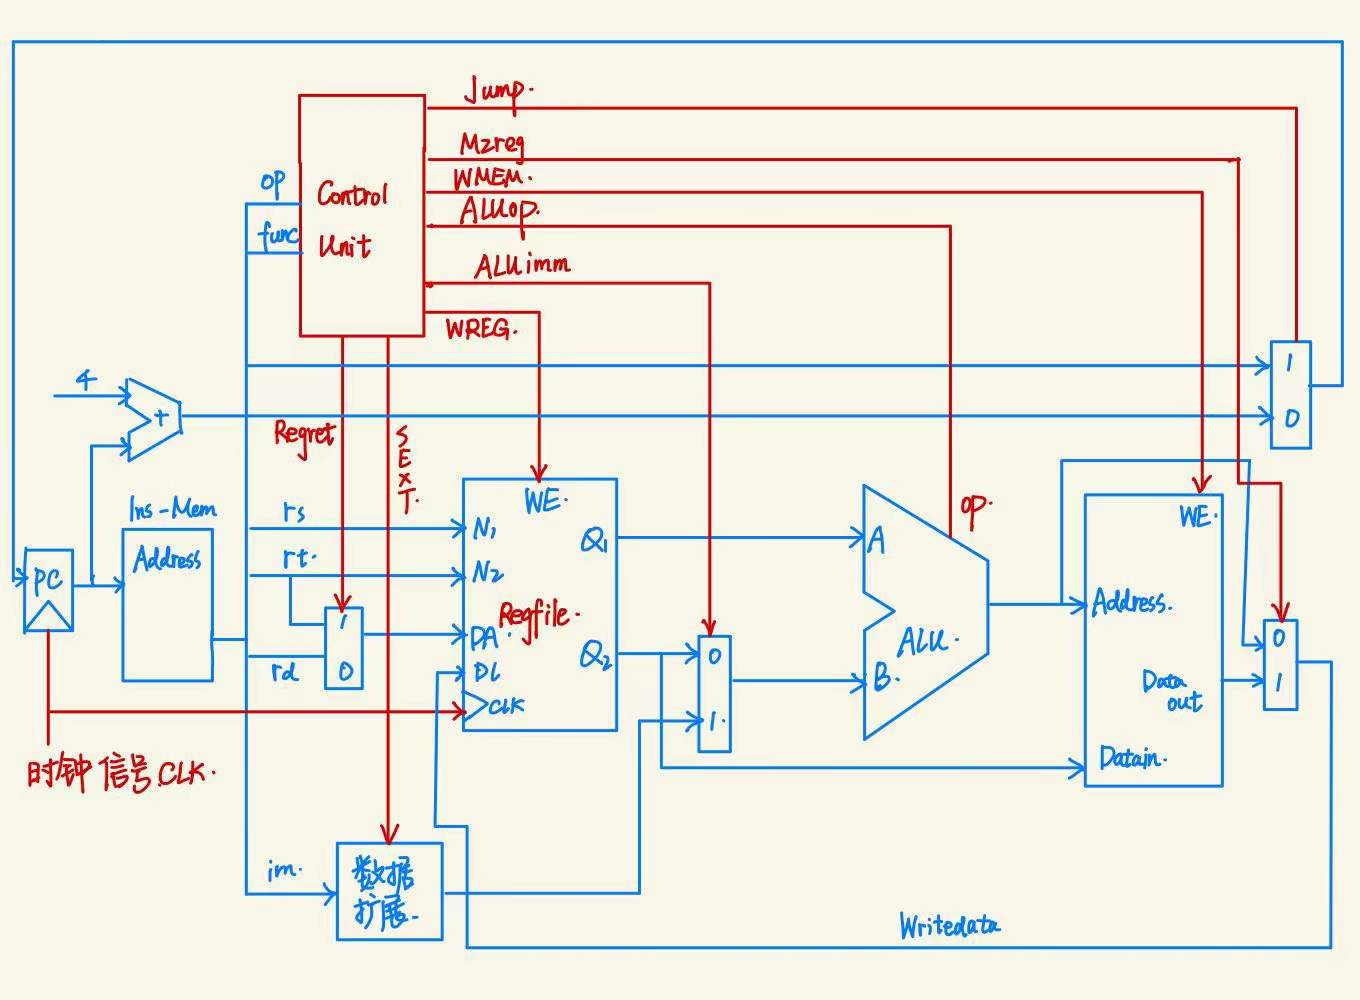 Jump.
M2reg
WMEM.
ALUop.
ALUimm
WREG.
OP
func
Control
Unit
4
+
1
0
Regret
SEXT.
Ins-Mem
Address
PC
rs
rt.
rd
1
0
WE.
N1
N2
Regfile.
DA.
DI
CLK
Q1
Q2
0
1.
A
B.
ALU.
OP.
WE.
Address.
Data
out
Datain.
0
1
时钟信号CLK.
im.
数据
扩展.
Writedata